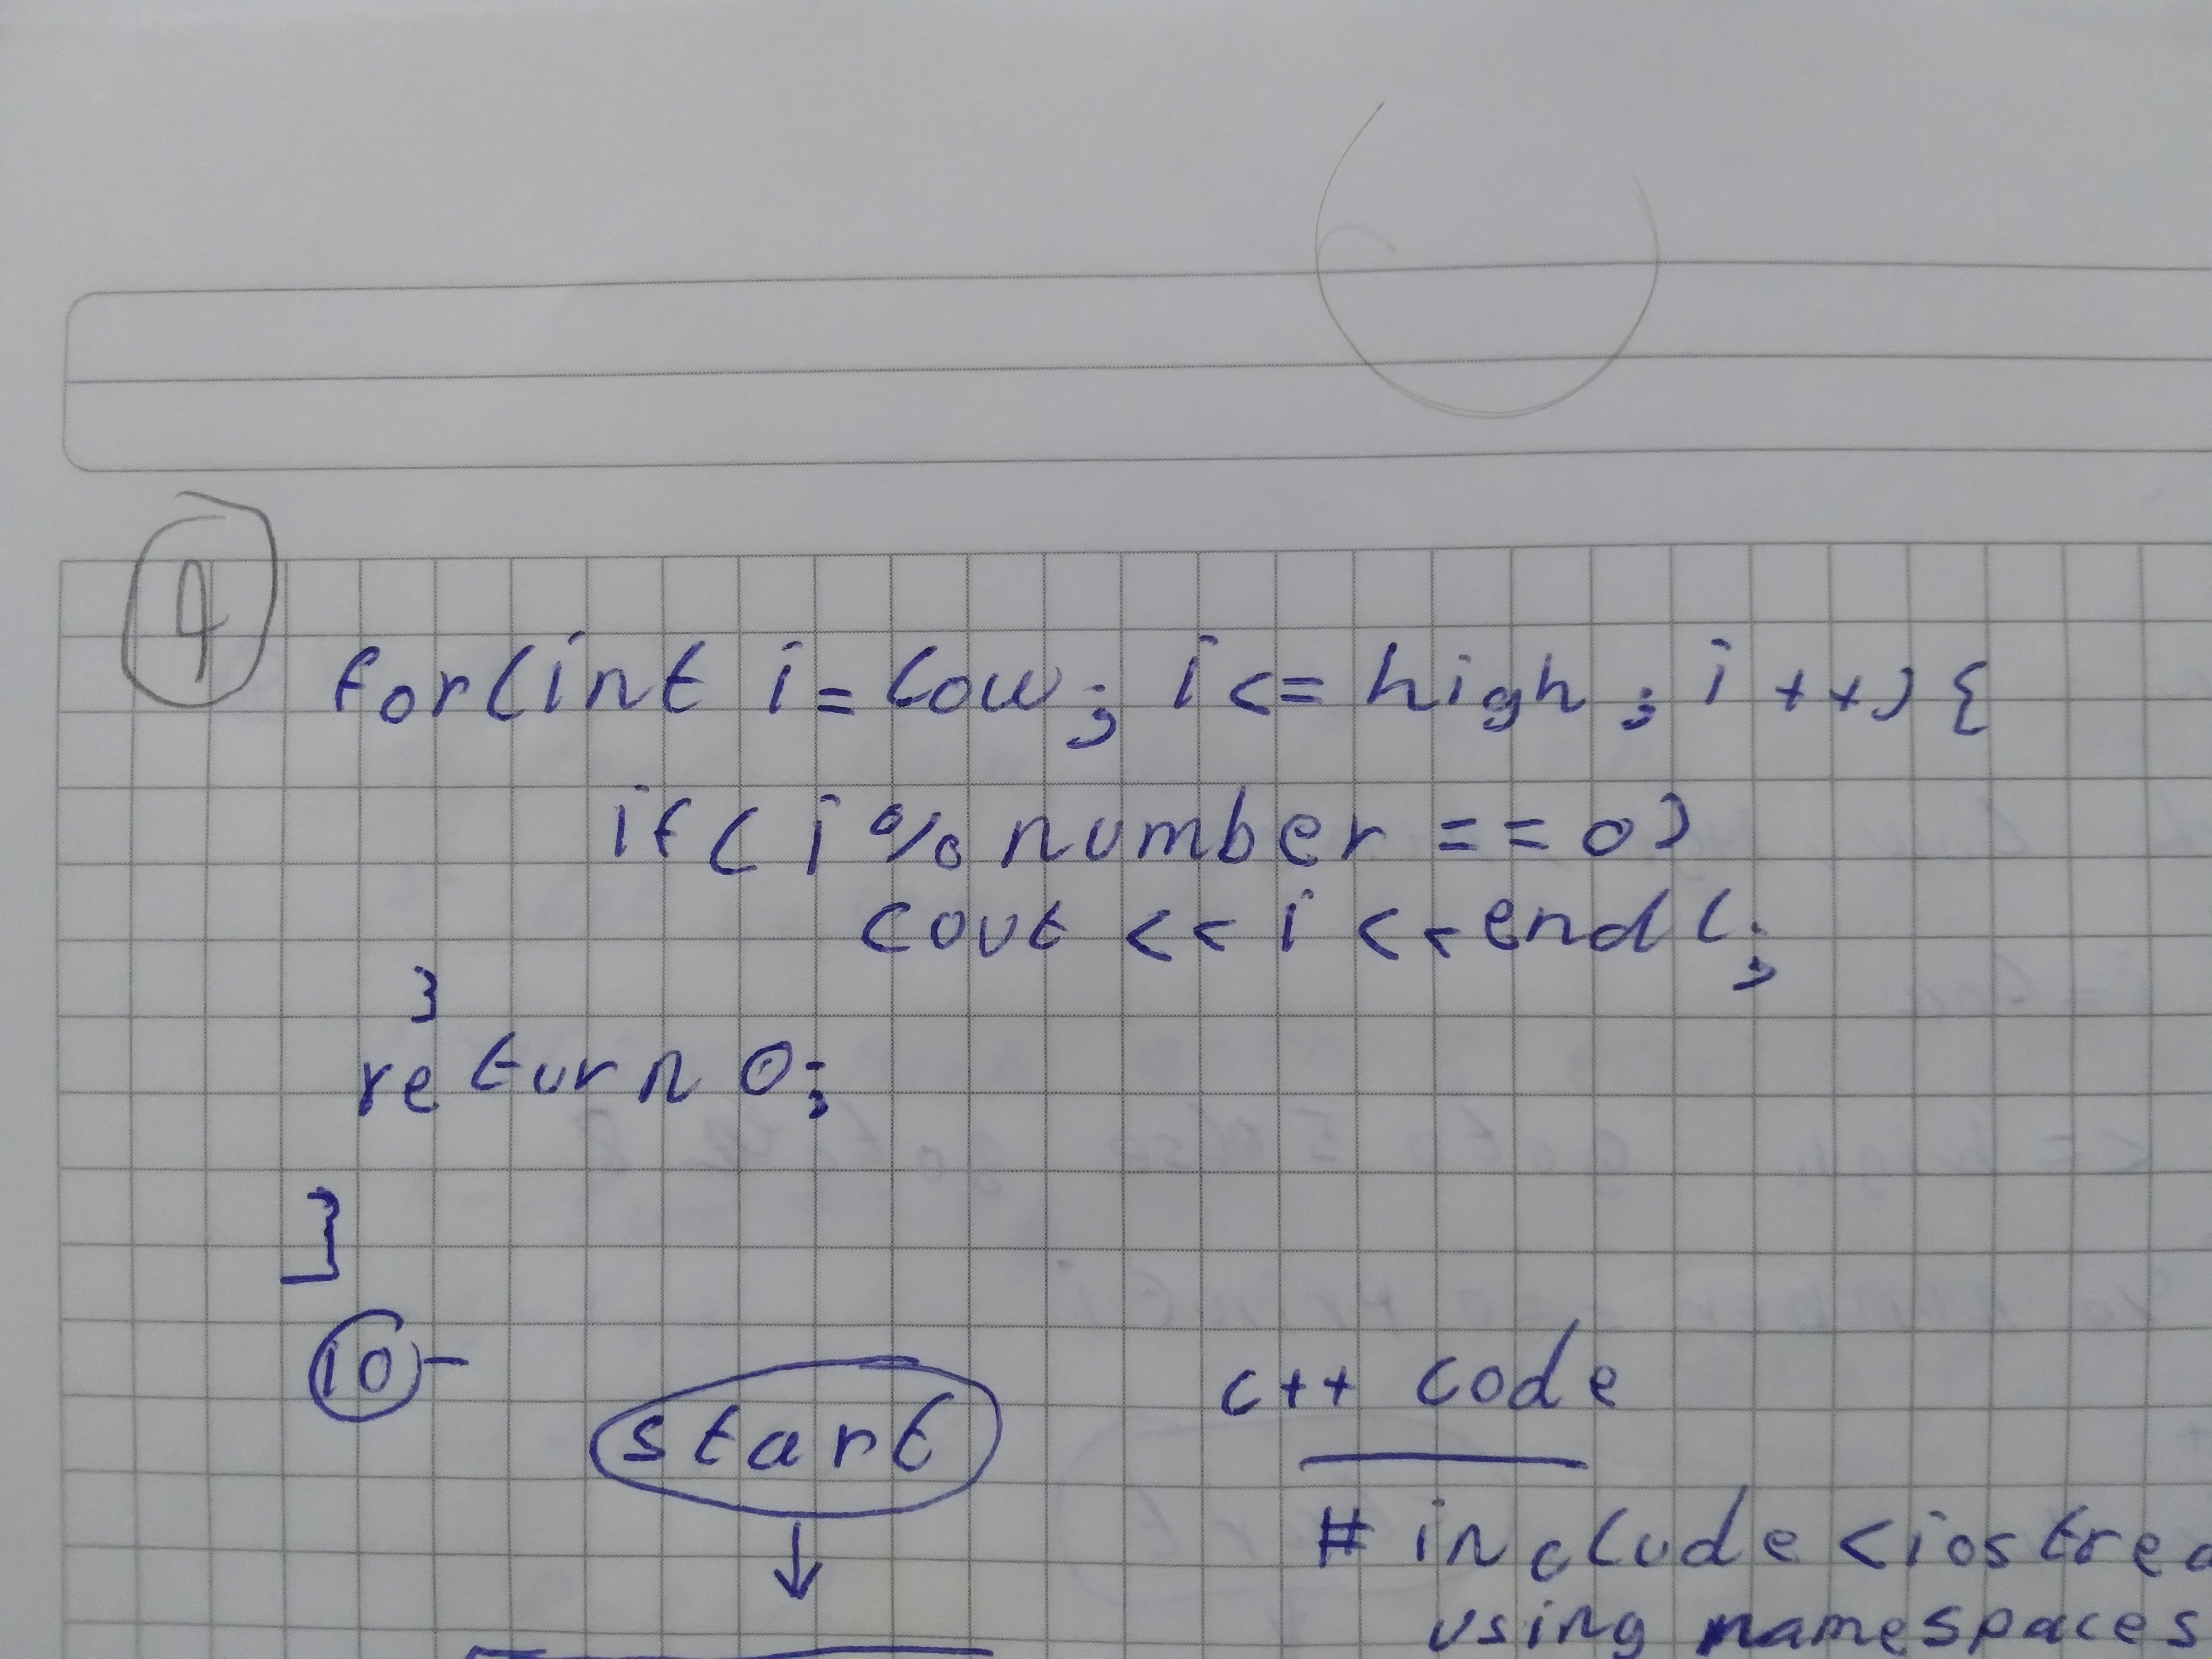 4
for(int i=low; i<= high; i++){
if( i % number == 0)
cout << i << endl;
}
return 0;
}
10-
start
c++ code
# include <iostrea
using namespaces